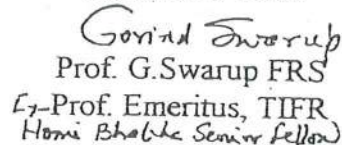 Govind Swarup
Prof. G.Swarup FRS
Ex-Prof. Emeritus, TIFR
Homi Bhabha Senior Fellow